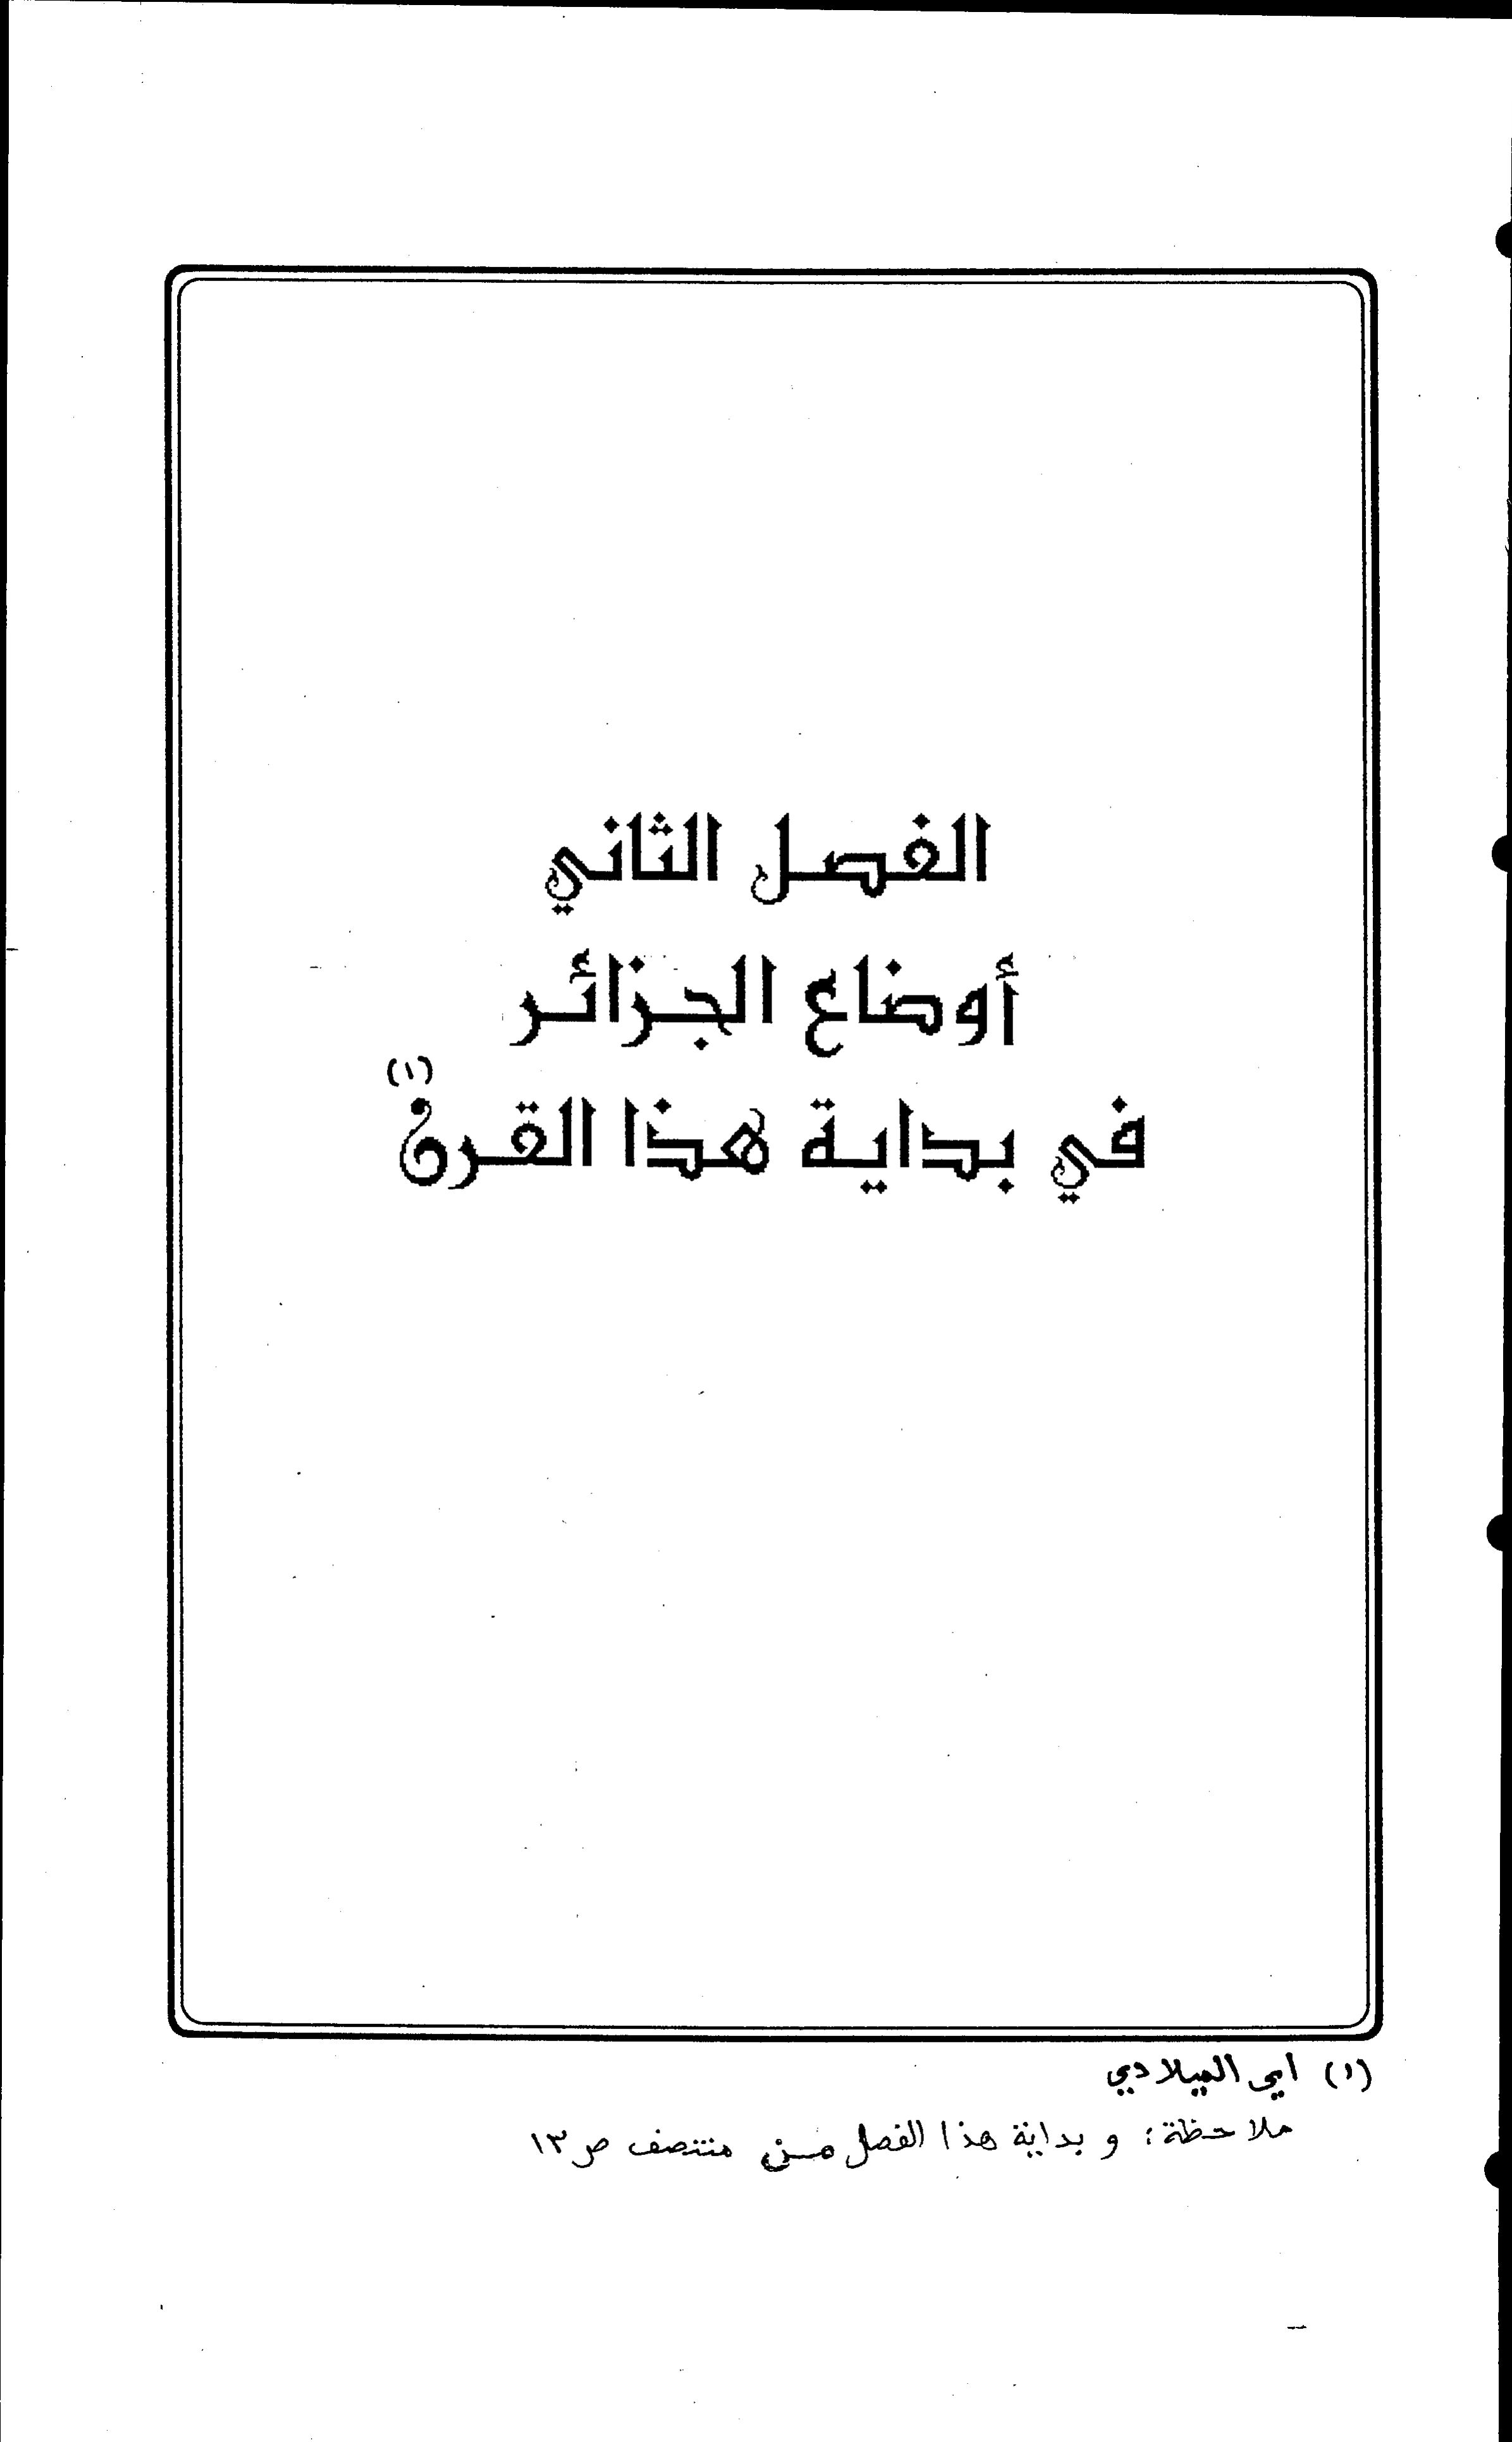 الفصل الثاني
أوضاع الجزائر
في بداية هذا القرن (١)
(١) اي الميلادي
ملاحظة : و بداية هذا الفصل من منتصف ص ١٣